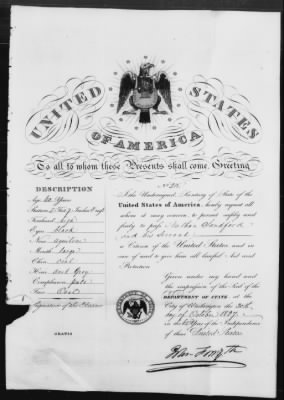 UNITED STATES
OF AMERICA
To all to whom these Presents shall come, Greeting
No.
DESCRIPTION
Age, 60 Years
Stature, 5 Feet 7 Inches Eng.
Forehead, high
Eyes black
Nose
Mouth large
Chin oval
Hair dark Grey
Complexion pale
Face Oval
Signature of the Bearer
GRATIS
I the Undersigned, Secretary of State of the
United States of America, hereby request all
whom it may concern, to permit safely and
freely to pass Nathan Sandford
and his servant
a Citizen of the United States and in
case of need to give him all lawful Aid and
Protection
Given under my hand and
the impression of the Seal of the
DEPARTMENT OF STATE at the
City of Washington the
day of October 1837
in the Year of the Independence
of these United States.
John Forsyth